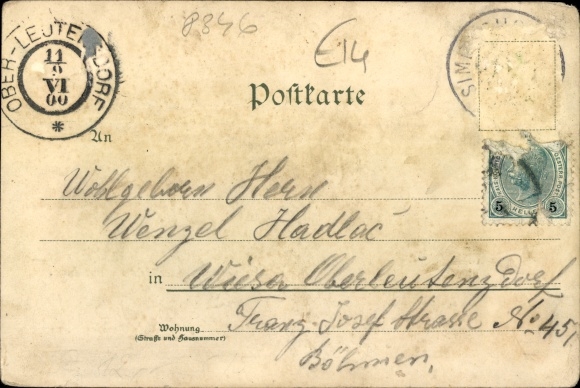 8346
E14
OBER-LEUTENSDORF
11
9
VI
00
*
SIM
Postkarte
An
Wohlgeborn Herrn
Wenzel Hadlač
5 HELLER 5
in Wiesa Oberleutensdorf
Franz-Josef Strasse No 451
Wohnung
(Straße und Hausnummer)
Böhmen.